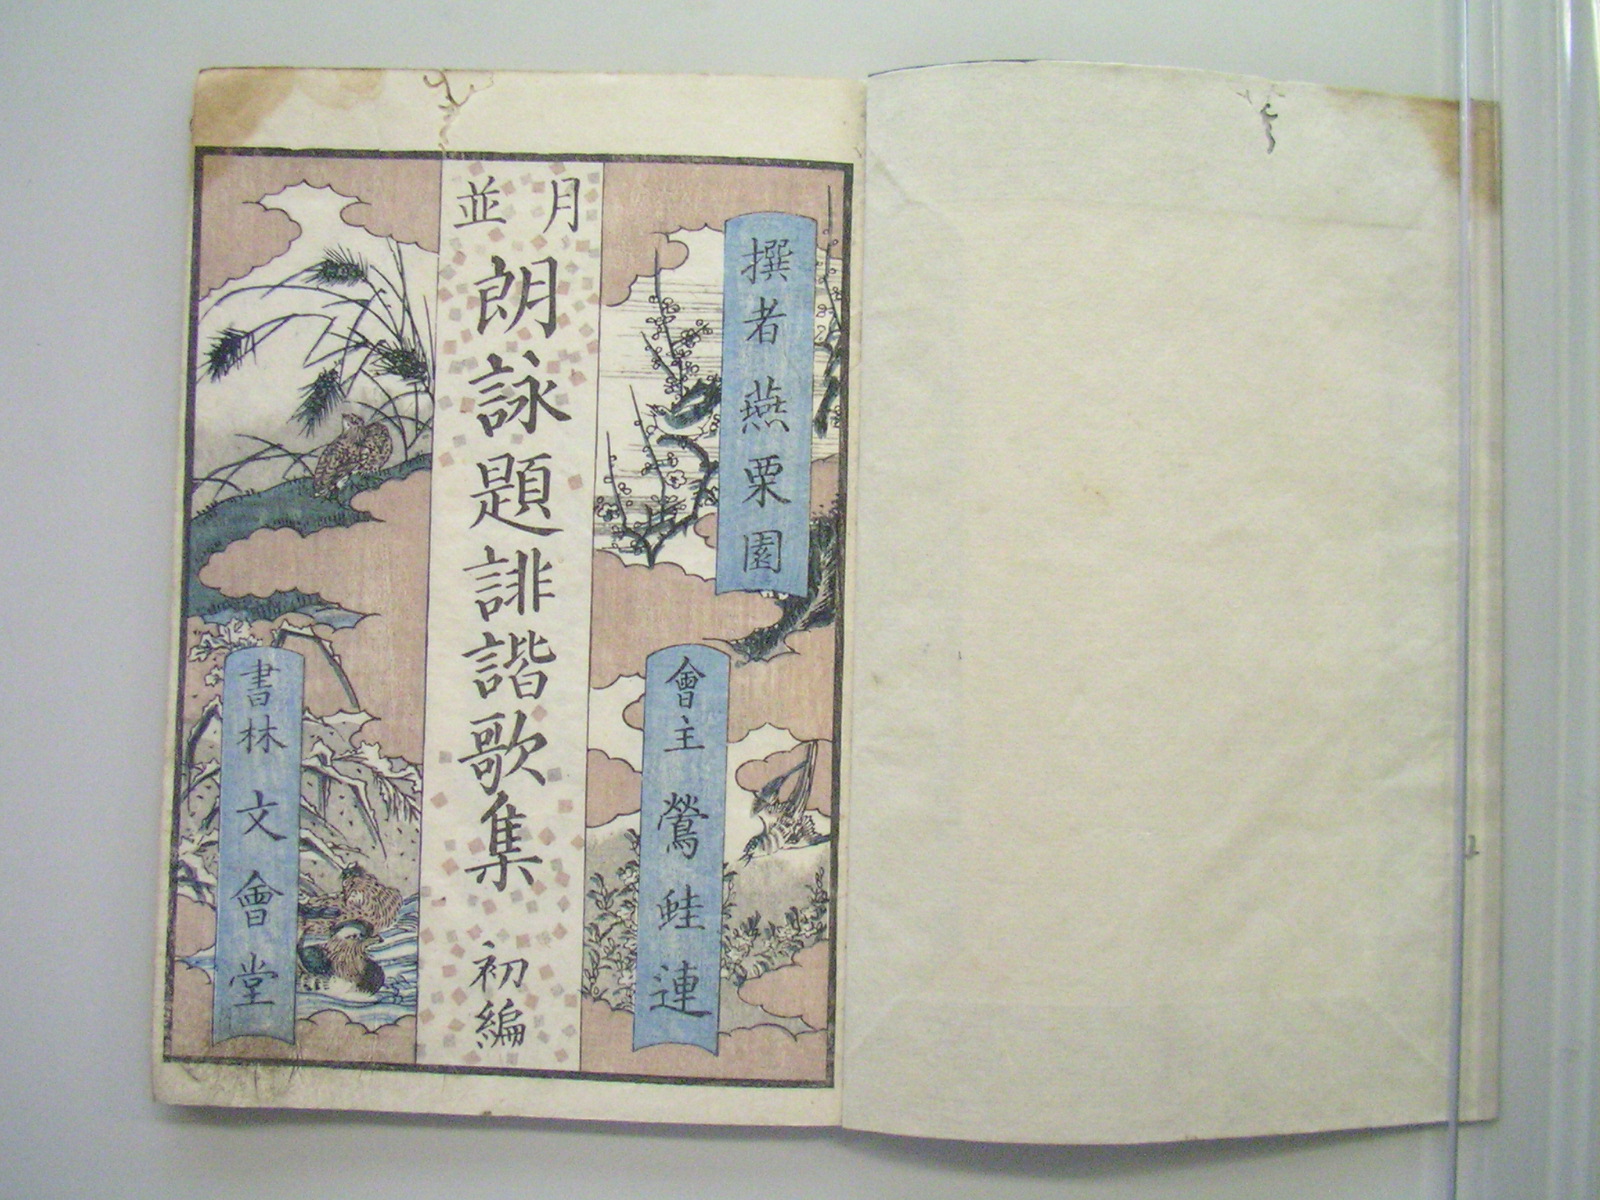 撰者 燕栗園
會主 鶯蛙連
月並
朗詠題誹諧歌集
初編
書林 文會堂